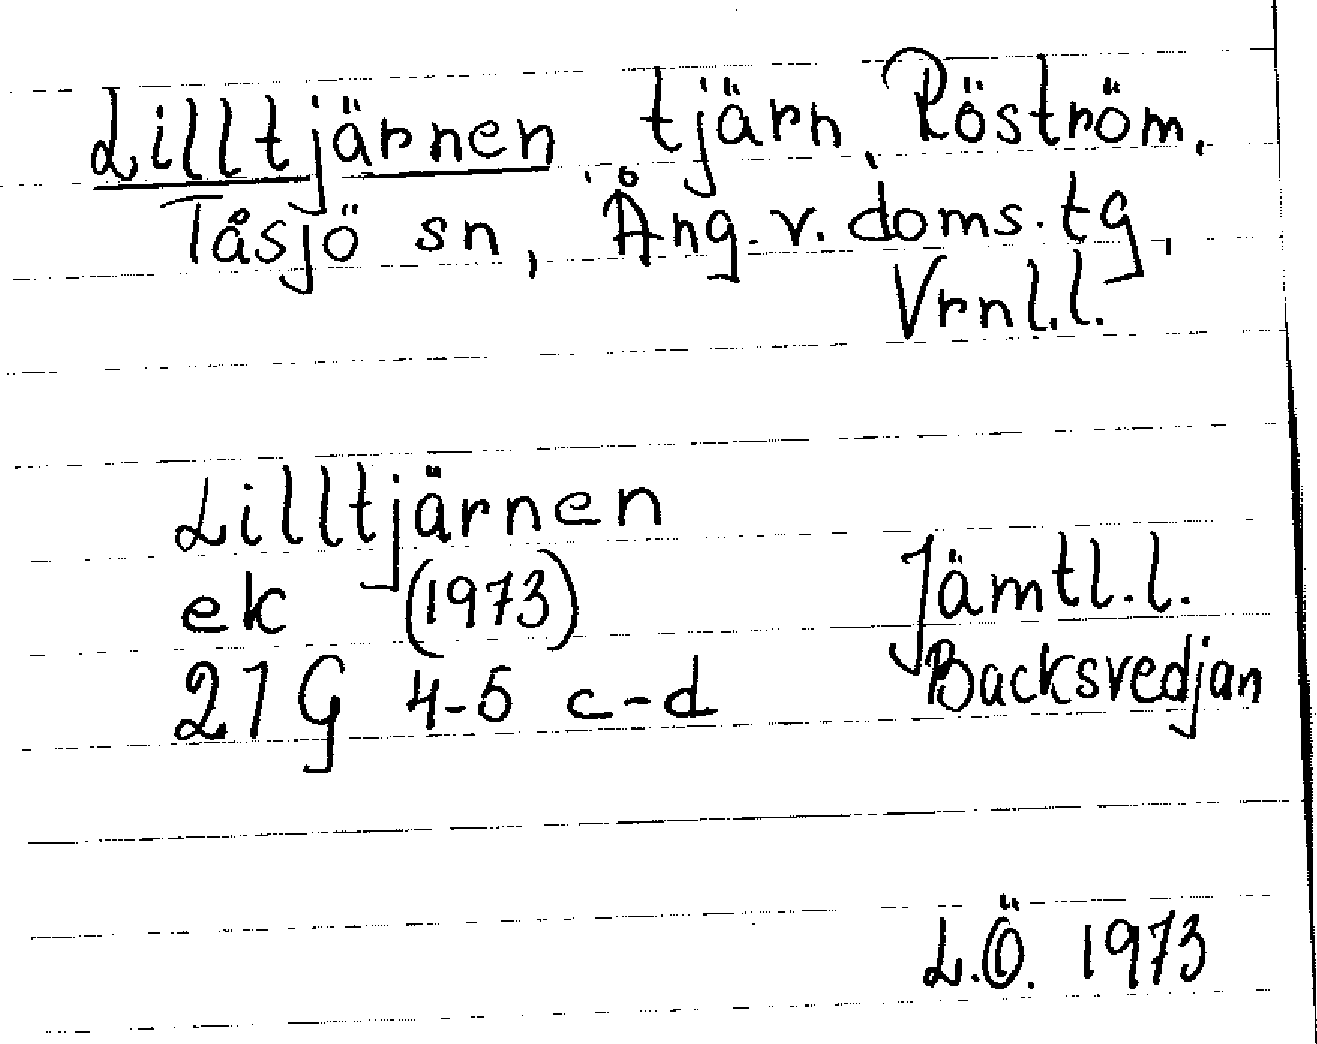 Lilltjärnen tjärn, Röström,
Tåsjö sn, Ång. v. doms. tg,
Vrnl.l.
Lilltjärnen
ek (1973)
21G 4-5 c-d
Jämtl.l.
Backsvedjan
L.Ö. 1973